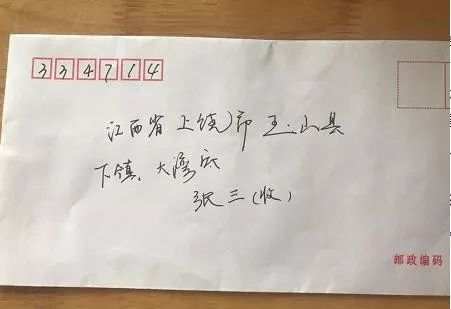 334714
江西省上饶市玉山县
下镇，大湾底
张三（收）
邮政编码